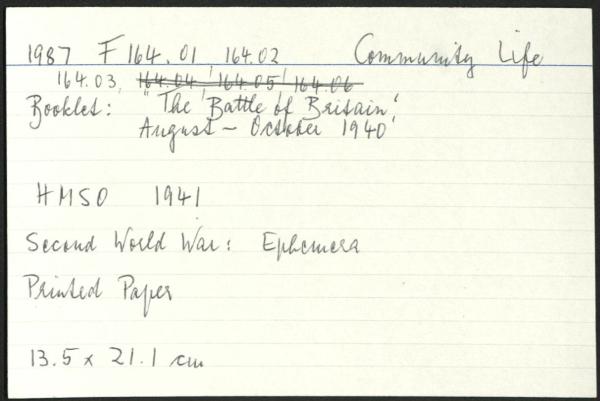 1987 F 164.01 164.02 Community Life
164.03, 164.04, 164.05, 164.06
Booklet: "The Battle of Britain"
August – October 1940'
HMSO 1941
Second World War: Ephemera
Printed Paper
13.5 x 21.1 cm